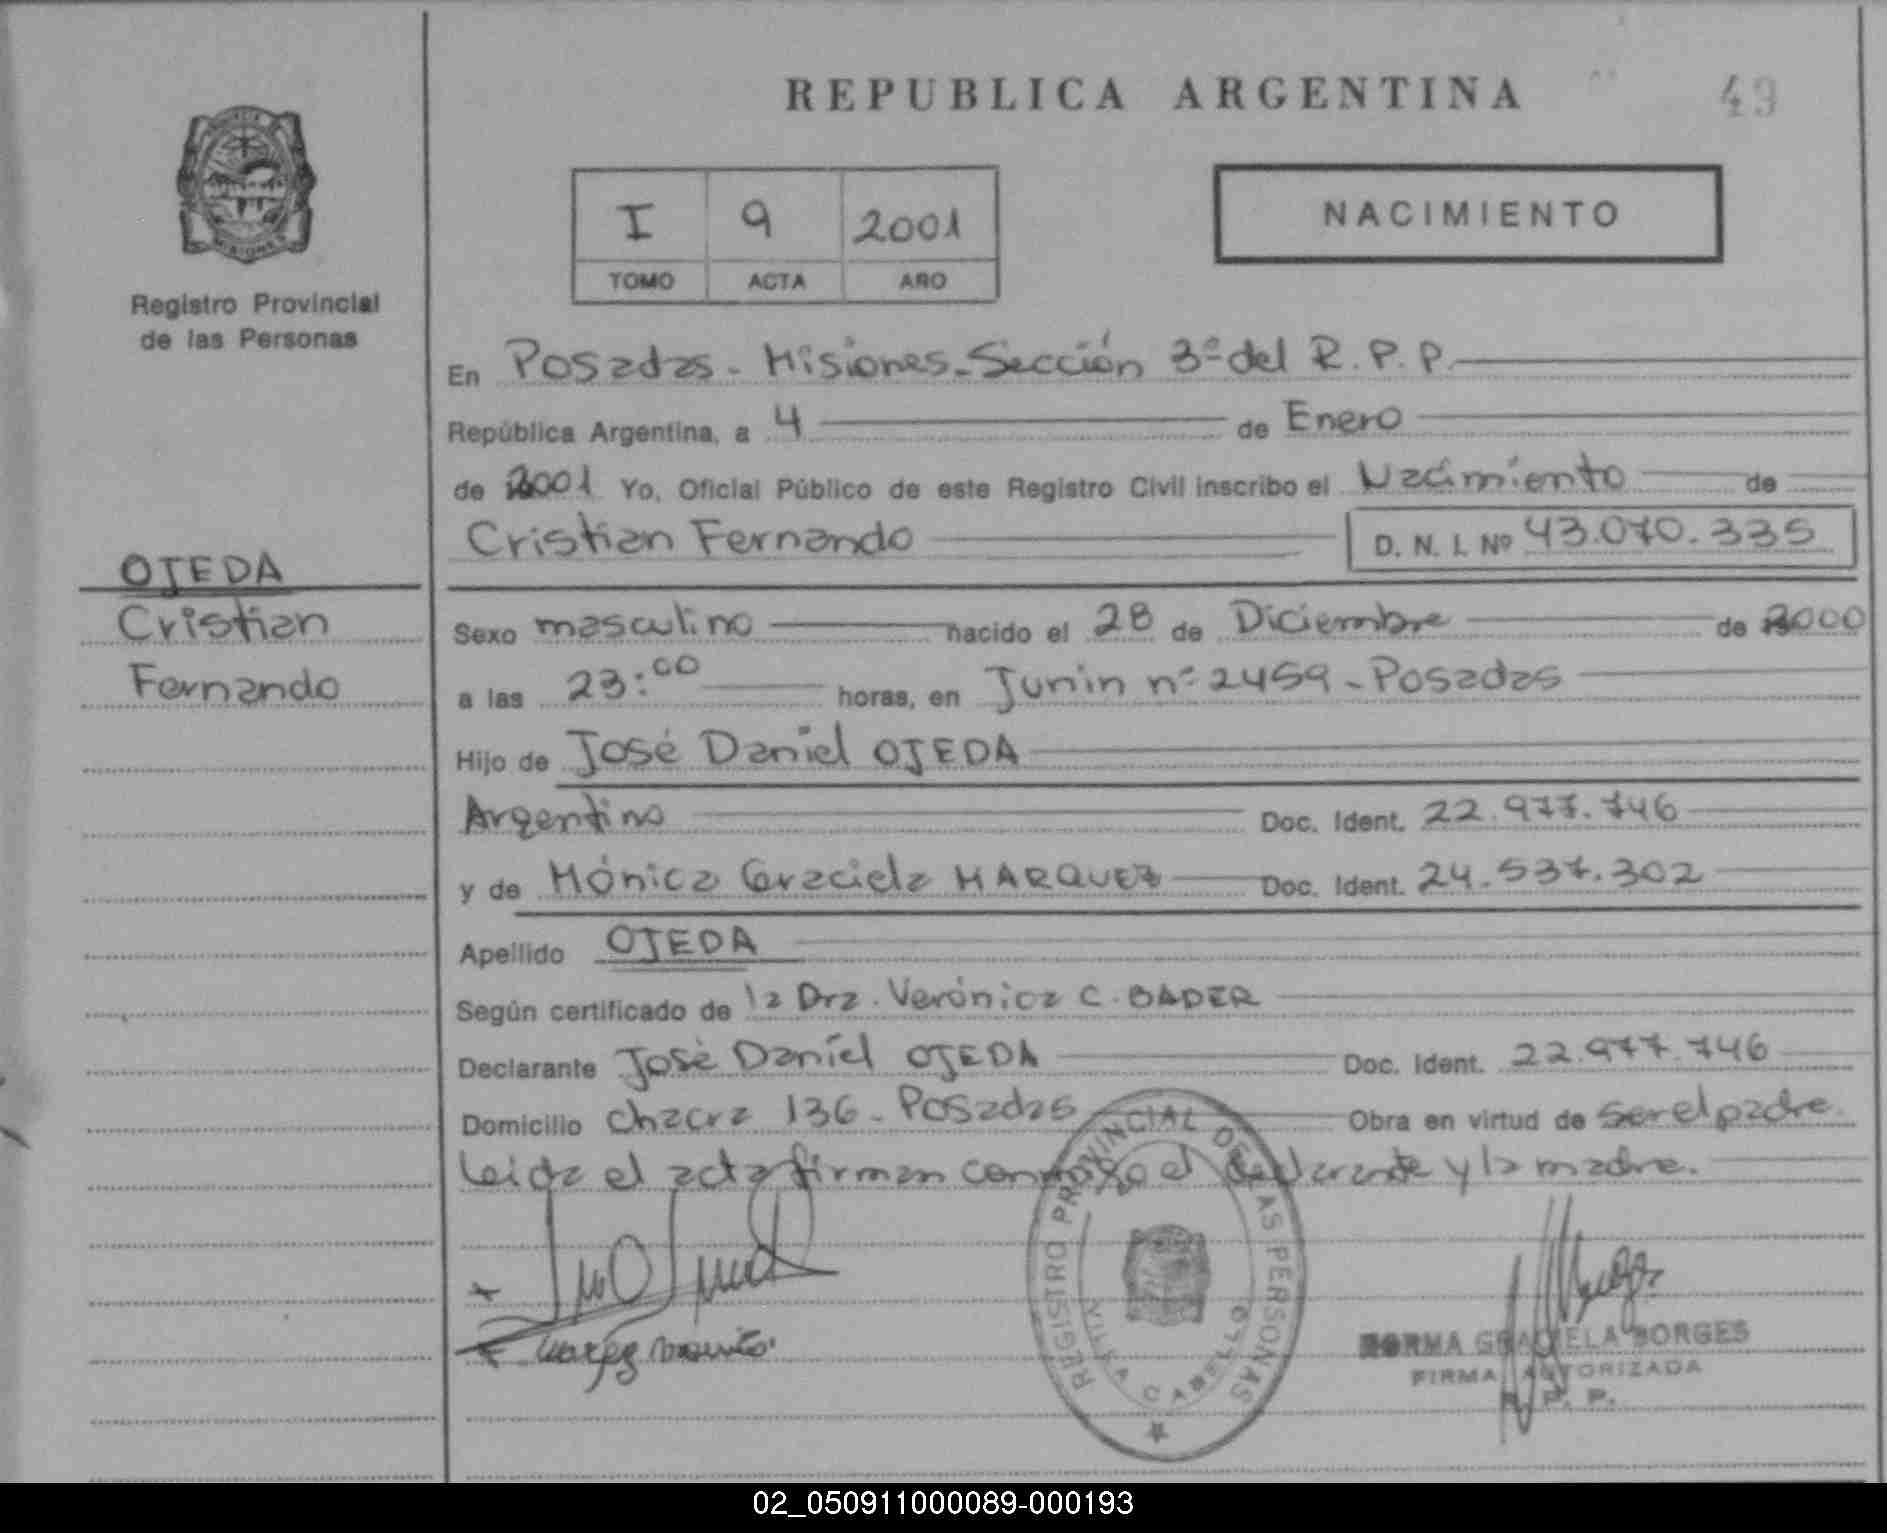 REPUBLICA ARGENTINA
49
I 9 2001
TOMO ACTA AÑO
NACIMIENTO
Registro Provincial
de las Personas
En Posadas - Misiones - Sección 3º del R. P. P.
República Argentina, a 4 de Enero
de 2001 Yo, Oficial Público de este Registro Civil inscribo el Nacimiento de
Cristian Fernando D. N. I. Nº 43.070.335
OJEDA
Cristian
Fernando
Sexo masculino nacido el 28 de Diciembre de 2000
a las 23:00 horas, en Junin nº 2459 - Posadas
Hijo de José Daniel OJEDA
Argentino Doc. Ident. 22.977.746
y de Mónica Graciela MARQUEZ Doc. Ident. 24.537.302
Apellido OJEDA
Según certificado de la Dra. Verónica C. BADER
Declarante José Daniel OJEDA Doc. Ident. 22.977.746
Domicilio Chacra 136 - Posadas Obra en virtud de ser el padre.
Leida el acta firman conmigo el declarante y la madre.
REGISTRO PROVINCIAL DE LAS PERSONAS
VILLA CABELLO
NORMA GRACIELA BORGES
FIRMA AUTORIZADA
R. P. P.
02_050911000089-000193